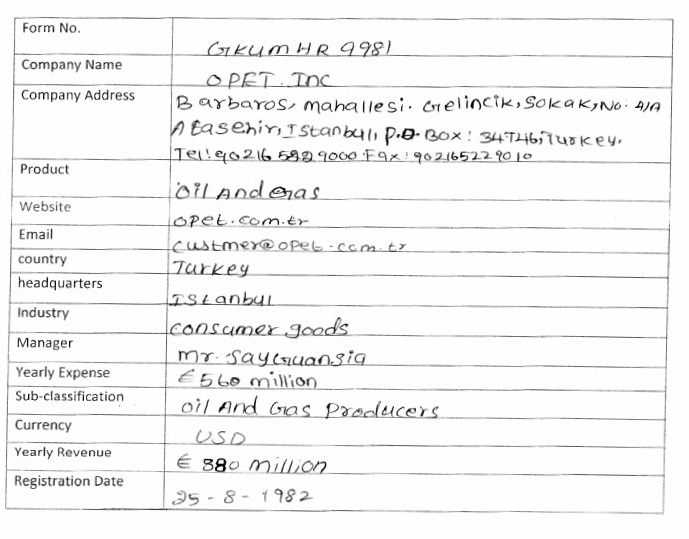 Form No. GKUMHR 9981
Company Name OPET. INC
Company Address Barbaros, mahallesi. Gelincik, Sokak, No: 4/A
Atasehir, Istanbul, P.O. Box: 34746, Turkey.
Tel: 90216 522 9000 Fax: 902165229010
Product Oil And Gas
Website opet.com.tr
Email custmer@opet.com.tr
country Turkey
headquarters Istanbul
Industry consumer goods
Manager mr. SayGuansia
Yearly Expense €560 million
Sub-classification Oil And Gas Producers
Currency USD
Yearly Revenue € 380 million
Registration Date 25-8-1982